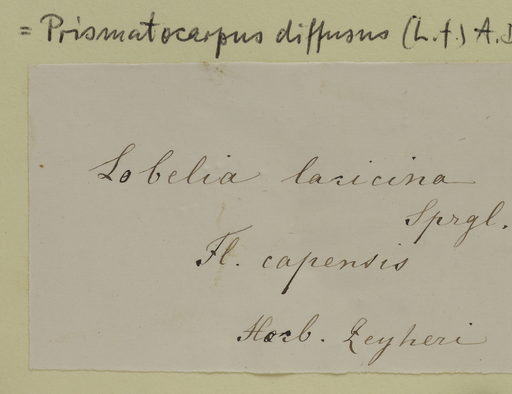 = Prismatocarpus diffusus (L.f.) A.D
Lobelia laricina
Sprgl.
Fl. capensis
Herb. Zeyheri